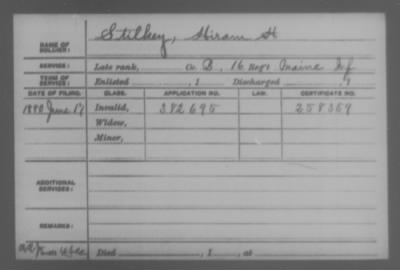 NAME OF SOLDIER: Stilkey, Hiram H
SERVICE: Late rank, Co. B, 16 Reg't Maine Inf
TERM OF SERVICE: Enlisted , 1 Discharged , 1
DATE OF FILING. CLASS. APPLICATION NO. LAW. CERTIFICATE NO.
1880 June 17 Invalid, 382695 258359
Widow,
Minor,
ADDITIONAL SERVICES:
REMARKS:
Died , 1 , at